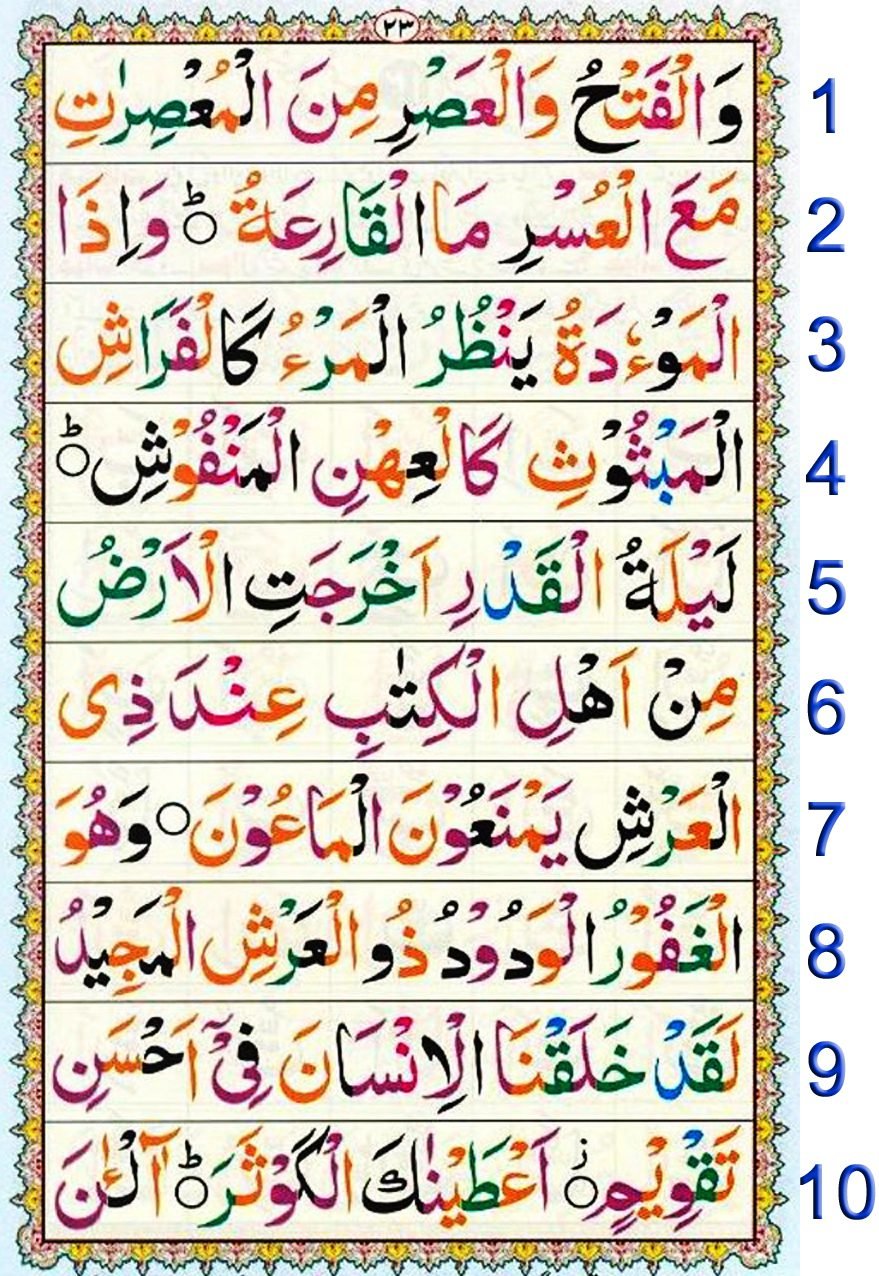 ٢٣
وَالْفَتْحُ وَالْعَصْرِ مِنَ الْمُعْصِرٰتِ 1
مَعَ الْعُسْرِ مَا الْقَارِعَةُ ؕ○ وَاِذَا 2
الْمَوْءٗدَةُ يَنْظُرُ الْمَرْءُ كَالْفَرَاشِ 3
الْمَبْثُوْثِ كَالْعِهْنِ الْمَنْفُوْشِ ؕ○ 4
لَيْلَةُ الْقَدْرِ اَخْرَجَتِ الْاَرْضُ 5
مِنْ اَهْلِ الْكِتٰبِ عِنْدَ ذِى 6
الْعَرْشِ يَمْنَعُوْنَ الْمَاعُوْنَ ○ وَهُوَ 7
الْغَفُوْرُ الْوَدُوْدُ ذُو الْعَرْشِ الْمَجِيْدُ 8
لَقَدْ خَلَقْنَا الْاِنْسَانَ فِىْٓ اَحْسَنِ 9
تَقْوِيْمٍ ز○ اَعْطَيْنٰكَ الْكَوْثَرَ ؕ○ آٰلْـٰٔنَ 10